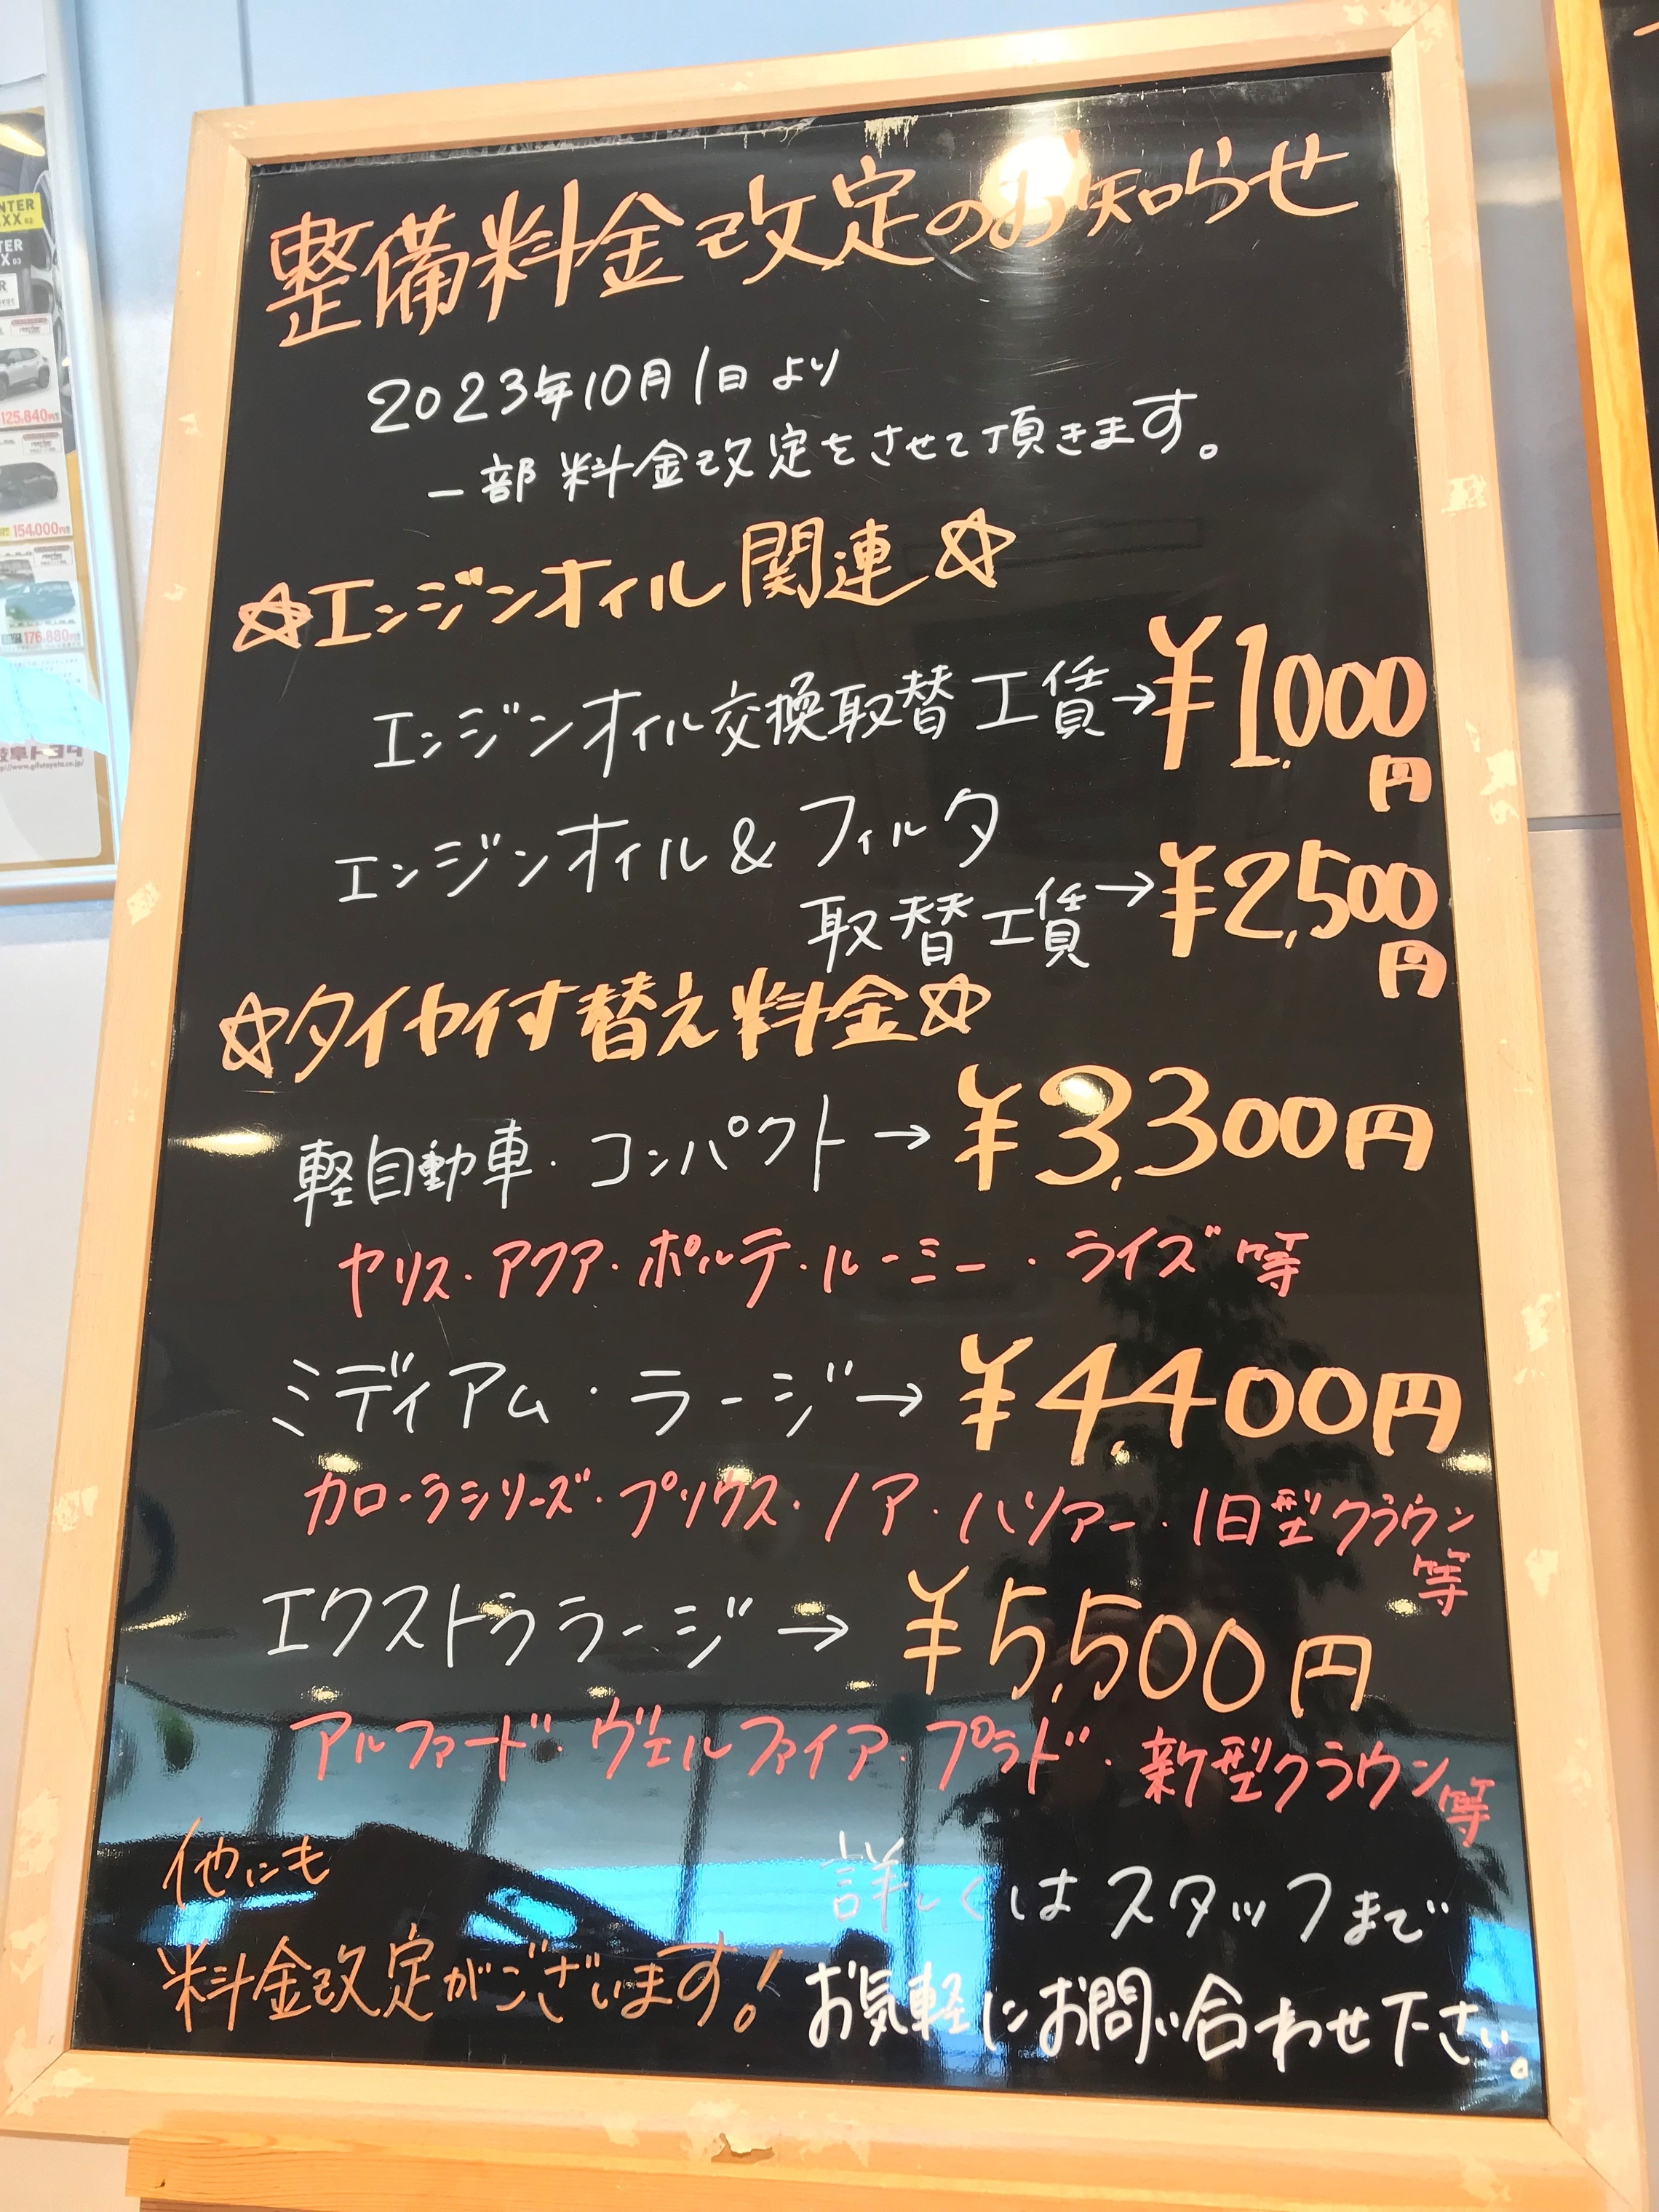 整備料金改定のお知らせ
2023年10月1日より
一部料金改定をさせて頂きます。
☆エンジンオイル関連☆
エンジンオイル交換取替工賃→¥1,000
円
エンジンオイル&フィルタ
取替工賃→¥2,500
円
☆タイヤ付替え料金☆
軽自動車・コンパクト→¥3,300円
ヤリス・アクア・ポルテ・ルーミー・ライズ等
ミディアム・ラージ→¥4,400円
カローラシリーズ・プリウス・ノア・ハリアー・旧型クラウン
等
エクストララージ→¥5,500円
アルファード・ヴェルファイア・プラド・新型クラウン等
他にも
料金改定がございます!
詳しくはスタッフまで
お気軽にお問い合わせ下さい。
125,840円
154,000円
176,880円
岐阜トヨタ